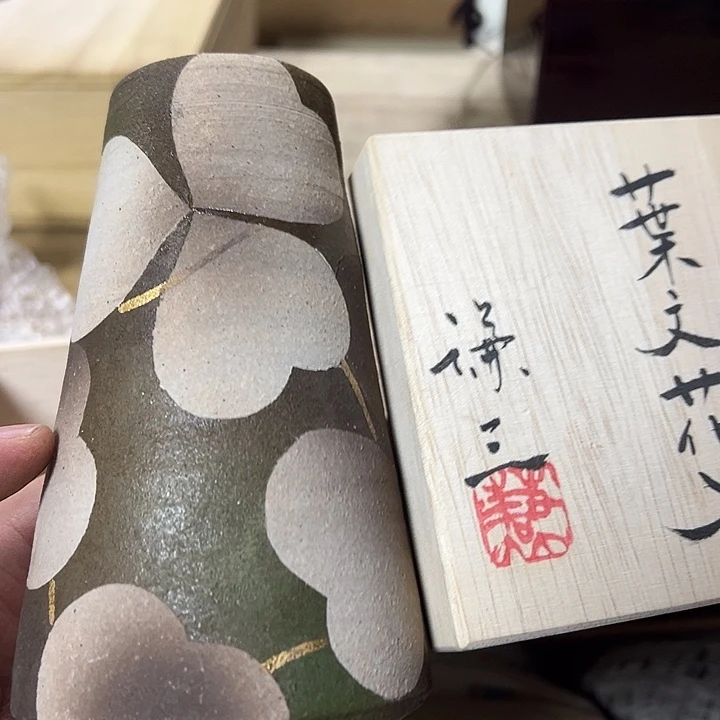 葉文花入
謙三